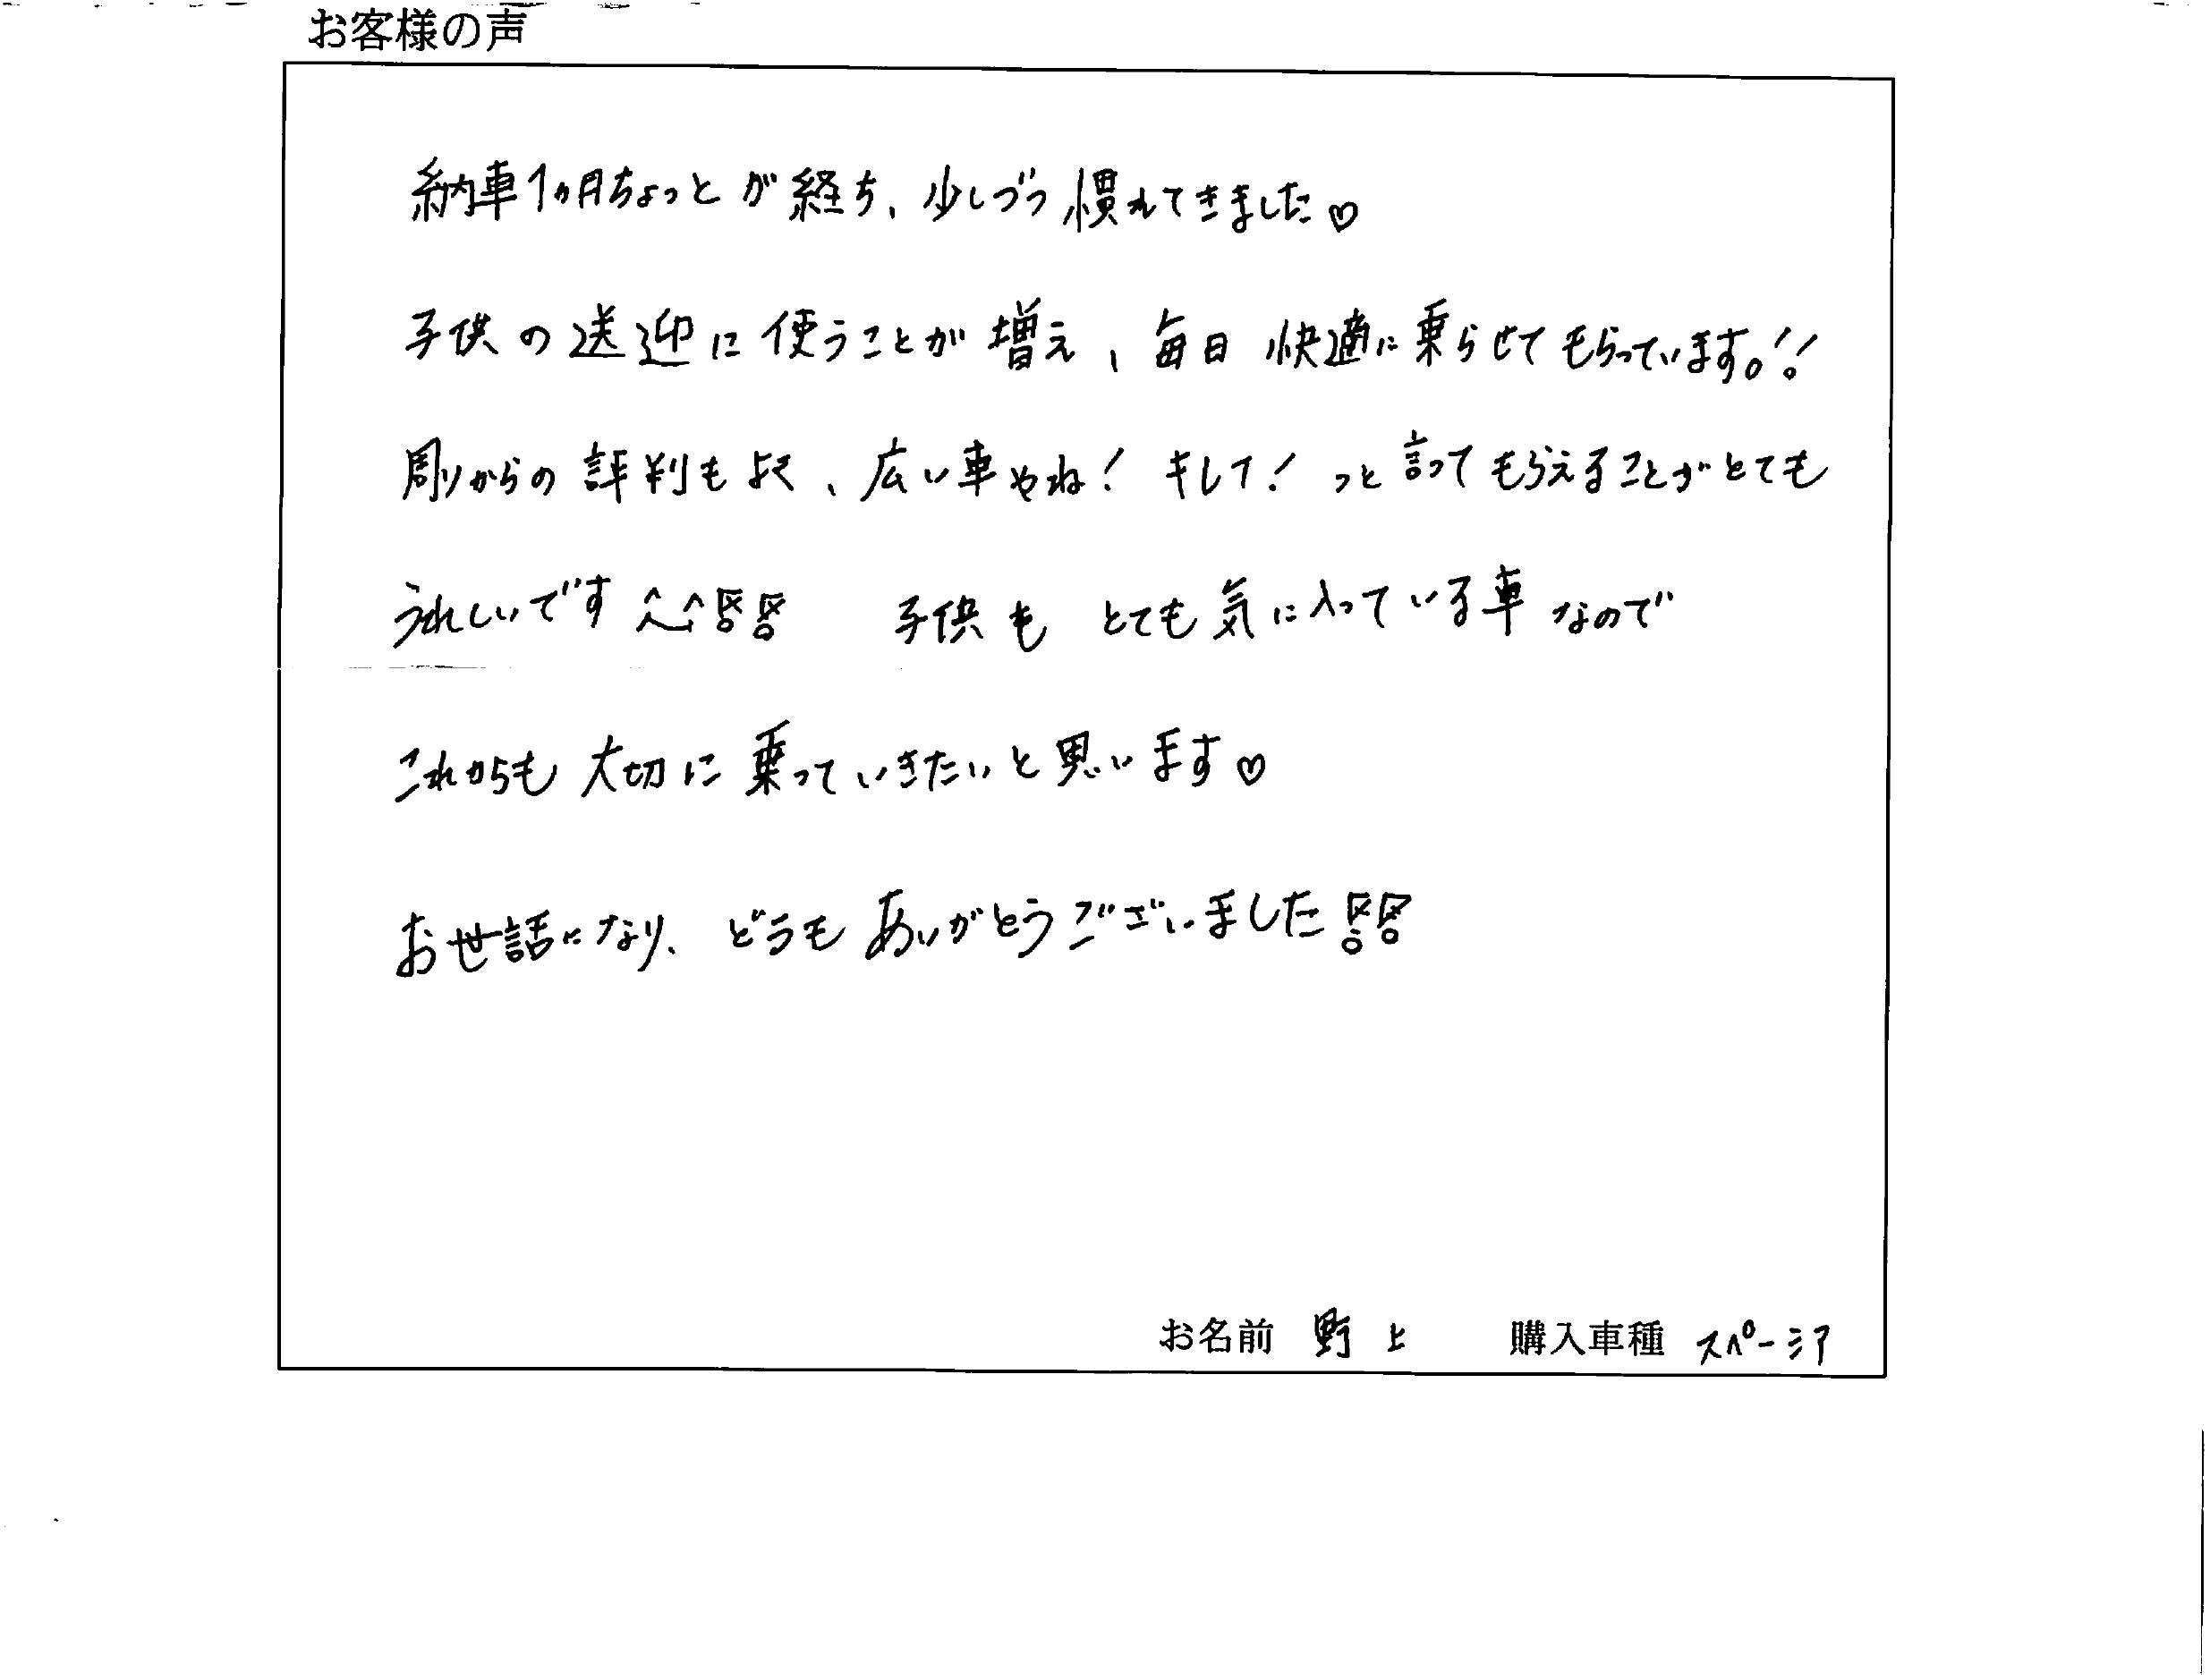 お客様の声
納車1ヵ月ちょっとが経ち、少しづつ慣れてきました♡
子供の送迎に使うことが増え、毎日快適に乗らせてもらっています。!!
周りからの評判もよく、広い車やね!キレイ!っと言ってもらえることがとても
うれしいです^^!! 子供もとても気に入っている車なので
これからも大切に乗っていきたいと思います♡
お世話になり、どうもありがとうございました!!
お名前 野上 購入車種 スペーシア